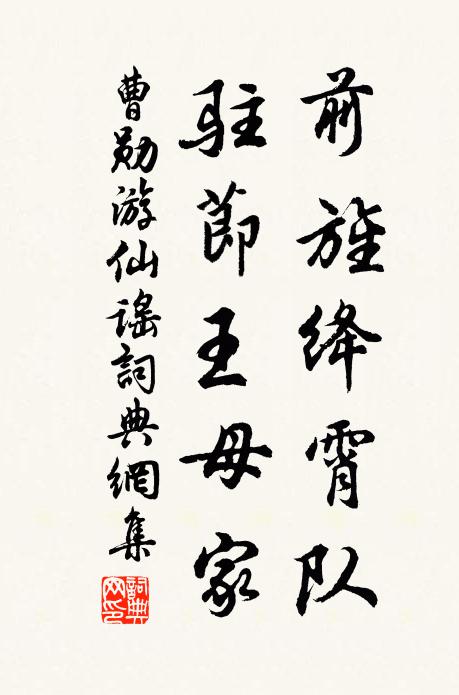 前旌绛霄队
驻节王母家
曹勋游仙谣詞典網集
詞典
网印